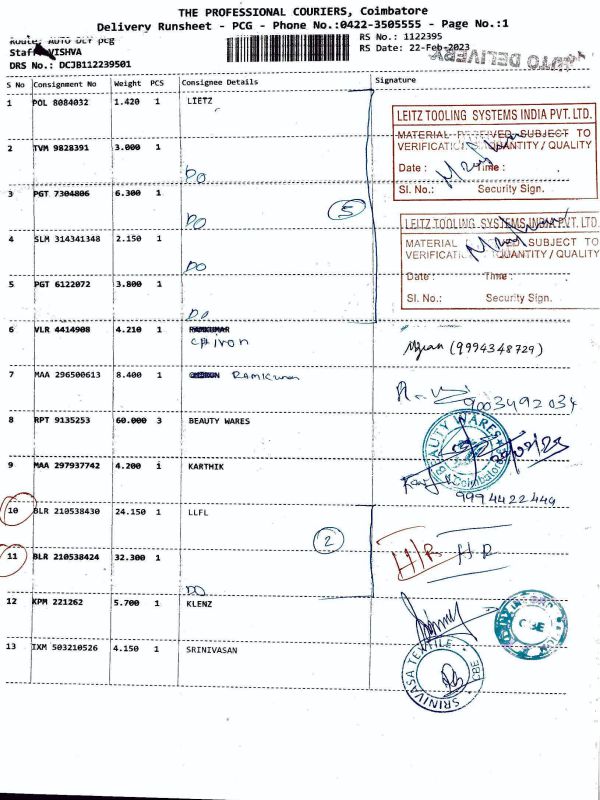 THE PROFESSIONAL COURIERS, Coimbatore
Delivery Runsheet - PCG - Phone No.:0422-3505555 - Page No.:1
Route: AUTO DLY pcg
Staff: VISHVA
DRS No.: DCJB112239501
RS No.: 1122395
RS Date: 22-Feb-2023
AUTO DELIVERY
S No Consignment No Weight PCS Consignee Details Signature
1 POL 8084032 1.420 1 LIETZ
2 TVM 9828391 3.000 1
DO
3 PGT 7304806 6.300 1
DO
5
4 SLM 314341348 2.150 1
DO
5 PGT 6122072 3.800 1
DO
LEITZ TOOLING SYSTEMS INDIA PVT. LTD.
MATERIAL RECEIVED SUBJECT TO
VERIFICATION QUANTITY / QUALITY
Date : Time :
Sl. No.: Security Sign.
LEITZ TOOLING SYSTEMS INDIA PVT. LTD.
MATERIAL SUBJECT TO
VERIFICATION QUANTITY / QUALITY
Date : Time :
Sl. No.: Security Sign.
6 VLR 4414908 4.210 1 RAMKUMAR
(9994348729)
7 MAA 296500613 8.400 1 RAMKumar
9003492034
8 RPT 9135253 60.000 3 BEAUTY WARES
BEAUTY WARES
Coimbatore
9 MAA 297937742 4.200 1 KARTHIK
9994422449
10 BLR 210538430 24.150 1 LLFL
2
H/R HR
11 BLR 210538424 32.300 1
DO
12 KPM 221262 5.700 1 KLENZ
CBE
13 IXM 503210526 4.150 1 SRINIVASAN
SRINIVASA TEXTILE
CBE